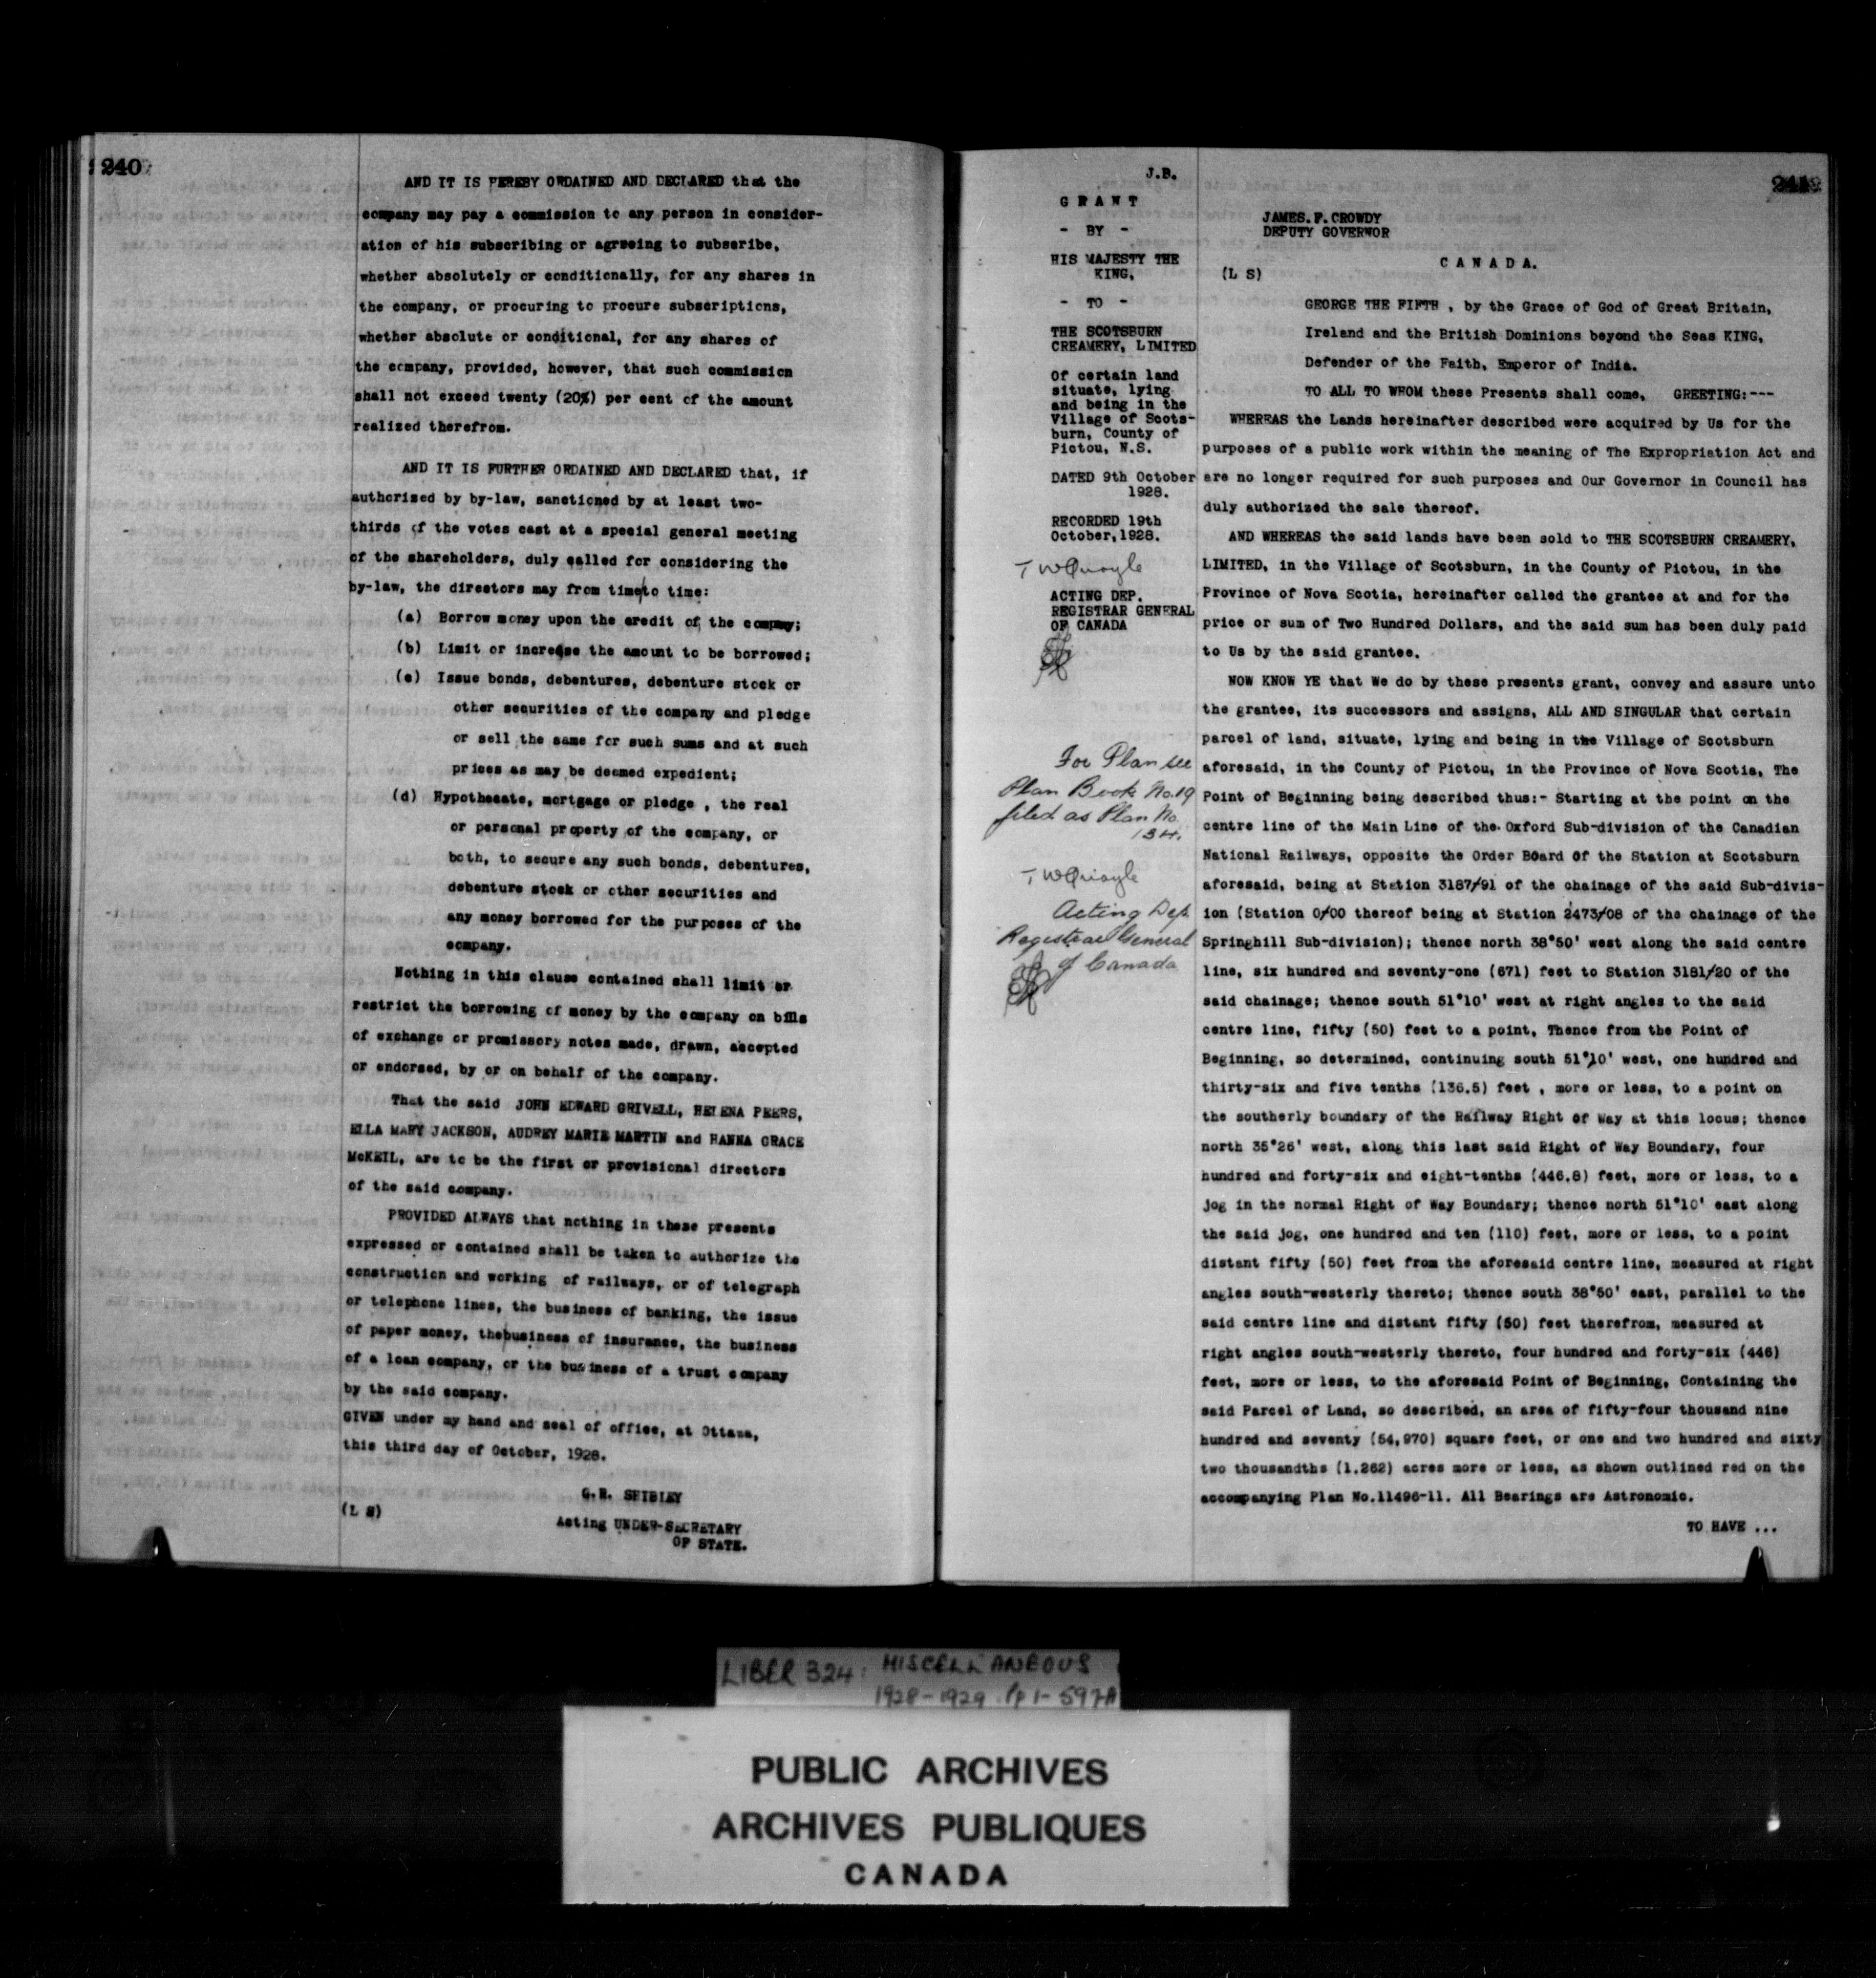 240
AND IT IS HEREBY ORDAINED AND DECLARED that the
company may pay a commission to any person in consider-
ation of his subscribing or agreeing to subscribe,
whether absolutely or conditionally, for any shares in
the company, or procuring to procure subscriptions,
whether absolute or conditional, for any shares of
the company, provided, however, that such commission
shall not exceed twenty (20%) per cent of the amount
realized therefrom.
AND IT IS FURTHER ORDAINED AND DECLARED that, if
authorized by by-law, sanctioned by at least two-
thirds of the votes cast at a special general meeting
of the shareholders, duly called for considering the
by-law, the directors may from time/to time:
(a) Borrow money upon the credit of the company;
(b) Limit or increase the amount to be borrowed;
(c) Issue bonds, debentures, debenture stock or
other securities of the company and pledge
or sell the same for such sums and at such
prices as may be deemed expedient;
(d) Hypothecate, mortgage or pledge , the real
or personal property of the company, or
both, to secure any such bonds, debentures,
debenture stock or other securities and
any money borrowed for the purposes of the
company.
Nothing in this clause contained shall limit or
restrict the borrowing of money by the company on bills
of exchange or promissory notes made, drawn, accepted
or endorsed, by or on behalf of the company.
That the said JOHN EDWARD GRIVELL, HELENA PEERS,
ELLA MARY JACKSON, AUDREY MARIE MARTIN and HANNA GRACE
McKEIL, are to be the first or provisional directors
of the said company.
PROVIDED ALWAYS that nothing in these presents
expressed or contained shall be taken to authorize the
construction and working of railways, or of telegraph
or telephone lines, the business of banking, the issue
of paper money, the/business of insurance, the business
of a loan company, or the business of a trust company
by the said company.
GIVEN under my hand and seal of office, at Ottawa,
this third day of October, 1928.
G.R. SHIBLEY
(L S)
Acting UNDER-SECRETARY
OF STATE.
J.B.
GRANT
- BY -
HIS MAJESTY THE
KING,
- TO -
THE SCOTSBURN
CREAMERY, LIMITED
Of certain land
situate, lying
and being in the
Village of Scots-
burn, County of
Pictou, N.S.
DATED 9th October
1928.
RECORDED 19th
October, 1928.
T W Quayle
ACTING DEP.
REGISTRAR GENERAL
OF CANADA
For Plan see
Plan Book No. 19
filed as Plan No.
134.
T W Quayle
Acting Dep.
Registrar General
of Canada
241
JAMES. F. CROWDY
DEPUTY GOVERNOR
CANADA.
(L S)
GEORGE THE FIFTH , by the Grace of God of Great Britain,
Ireland and the British Dominions beyond the Seas KING,
Defender of the Faith, Emperor of India.
TO ALL TO WHOM these Presents shall come, GREETING:---
WHEREAS the Lands hereinafter described were acquired by Us for the
purposes of a public work within the meaning of The Expropriation Act and
are no longer required for such purposes and Our Governor in Council has
duly authorized the sale thereof.
AND WHEREAS the said lands have been sold to THE SCOTSBURN CREAMERY,
LIMITED, in the Village of Scotsburn, in the County of Pictou, in the
Province of Nova Scotia, hereinafter called the grantee at and for the
price or sum of Two Hundred Dollars, and the said sum has been duly paid
to Us by the said grantee.
NOW KNOW YE that We do by these presents grant, convey and assure unto
the grantee, its successors and assigns, ALL AND SINGULAR that certain
parcel of land, situate, lying and being in the Village of Scotsburn
aforesaid, in the County of Pictou, in the Province of Nova Scotia, The
Point of Beginning being described thus:- Starting at the point on the
centre line of the Main Line of the Oxford Sub-division of the Canadian
National Railways, opposite the Order Board Of the Station at Scotsburn
aforesaid, being at Station 3187/91 of the chainage of the said Sub-divis-
ion (Station 0/00 thereof being at Station 2473/08 of the chainage of the
Springhill Sub-division); thence north 38°50' west along the said centre
line, six hundred and seventy-one (671) feet to Station 3181/20 of the
said chainage; thence south 51°10' west at right angles to the said
centre line, fifty (50) feet to a point, Thence from the Point of
Beginning, so determined, continuing south 51°10' west, one hundred and
thirty-six and five tenths (136.5) feet , more or less, to a point on
the southerly boundary of the Railway Right of Way at this locus; thence
north 35°26' west, along this last said Right of Way Boundary, four
hundred and forty-six and eight-tenths (446.8) feet, more or less, to a
jog in the normal Right of Way Boundary; thence north 51°10' east along
the said jog, one hundred and ten (110) feet, more or less, to a point
distant fifty (50) feet from the aforesaid centre line, measured at right
angles south-westerly thereto; thence south 38°50' east, parallel to the
said centre line and distant fifty (50) feet therefrom, measured at
right angles south-westerly thereto, four hundred and forty-six (446)
feet, more or less, to the aforesaid Point of Beginning, Containing the
said Parcel of Land, so described, an area of fifty-four thousand nine
hundred and seventy (54,970) square feet, or one and two hundred and sixty
two thousandths (1.262) acres more or less, as shown outlined red on the
accompanying Plan No.11496-11. All Bearings are Astronomic.
TO HAVE ...
LIBER 324: MISCELLANEOUS
1928-1929. Pp 1-597A
PUBLIC ARCHIVES
ARCHIVES PUBLIQUES
CANADA